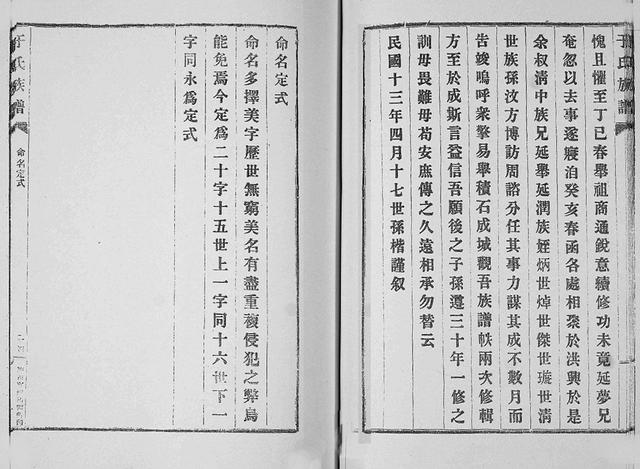 于氏族譜
愧且懼至丁巳春舉祖商通銳意續修功未竟延夢兄
奄忽以去事遂寢洎癸亥春函各處相聚於洪興於是
余叔清中族兄延舉延潤族姪炳世焯世傑世璡世清
世族孫汶方博訪周諮分任其事力謀其成不數月而
告竣嗚呼衆擎易舉積石成城觀吾族譜帙兩次修輯
方至於成斯言益信吾願後之子孫遵三十年一修之
訓毋畏難毋苟安庶傳之久遠相承勿替云
民國十三年四月十七世孫楷謹叙
命名定式
命名多擇美字歷世無窮美名有盡重複侵犯之弊烏
能免焉今定爲二十字十五世上一字同十六世下一
字同永爲定式
于氏族譜
命名定式